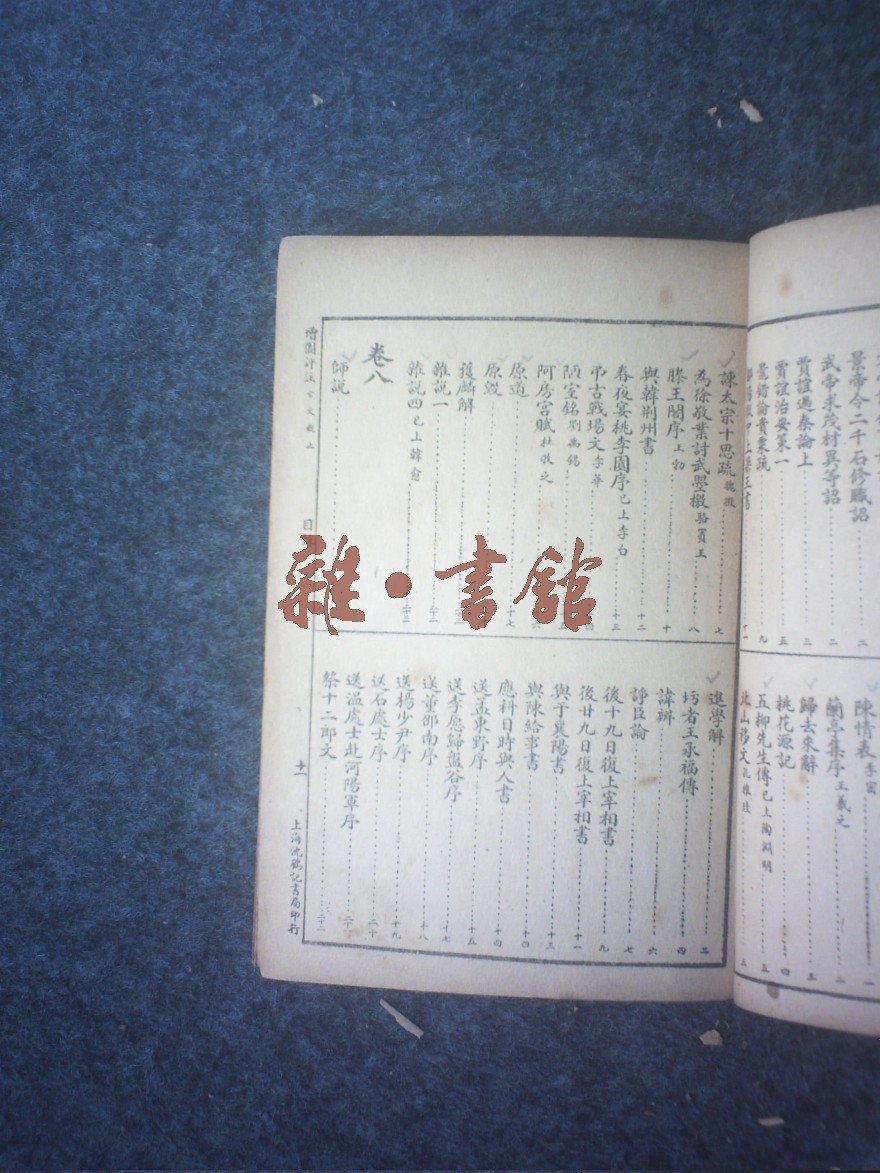 景帝令二千石修職詔二
武帝求茂材異等詔二
賈誼過秦論上三
賈誼治安策一五
鼂錯論貴粟疏九
陳情表李密一
蘭亭集序王羲之二
歸去來辭三
桃花源記四
五柳先生傳已上陶淵明五
北山移文孔稚珪五
諫太宗十思疏魏徵七
為徐敬業討武曌檄駱賓王八
滕王閣序王勃十
與韓荊州書十二
春夜宴桃李園序已上李白十三
弔古戰場文李華
陋室銘劉禹錫
阿房宮賦杜牧之
原道十七
原毀
獲麟解
雜說一
雜說四已上韓愈
卷八
師說
進學解二
圬者王承福傳四
諱辨六
諍臣論七
後十九日復上宰相書九
後廿九日復上宰相書十一
與于襄陽書十三
與陳給事書十四
應科目時與人書十四
送孟東野序十五
送李愿歸盤谷序十七
送董邵南序十八
送楊少尹序十九
送石處士序二十
送溫處士赴河陽軍序
祭十二郎文
增圖評注古文觀止
目
十一
上海沈鶴記書局印行
雜·書館